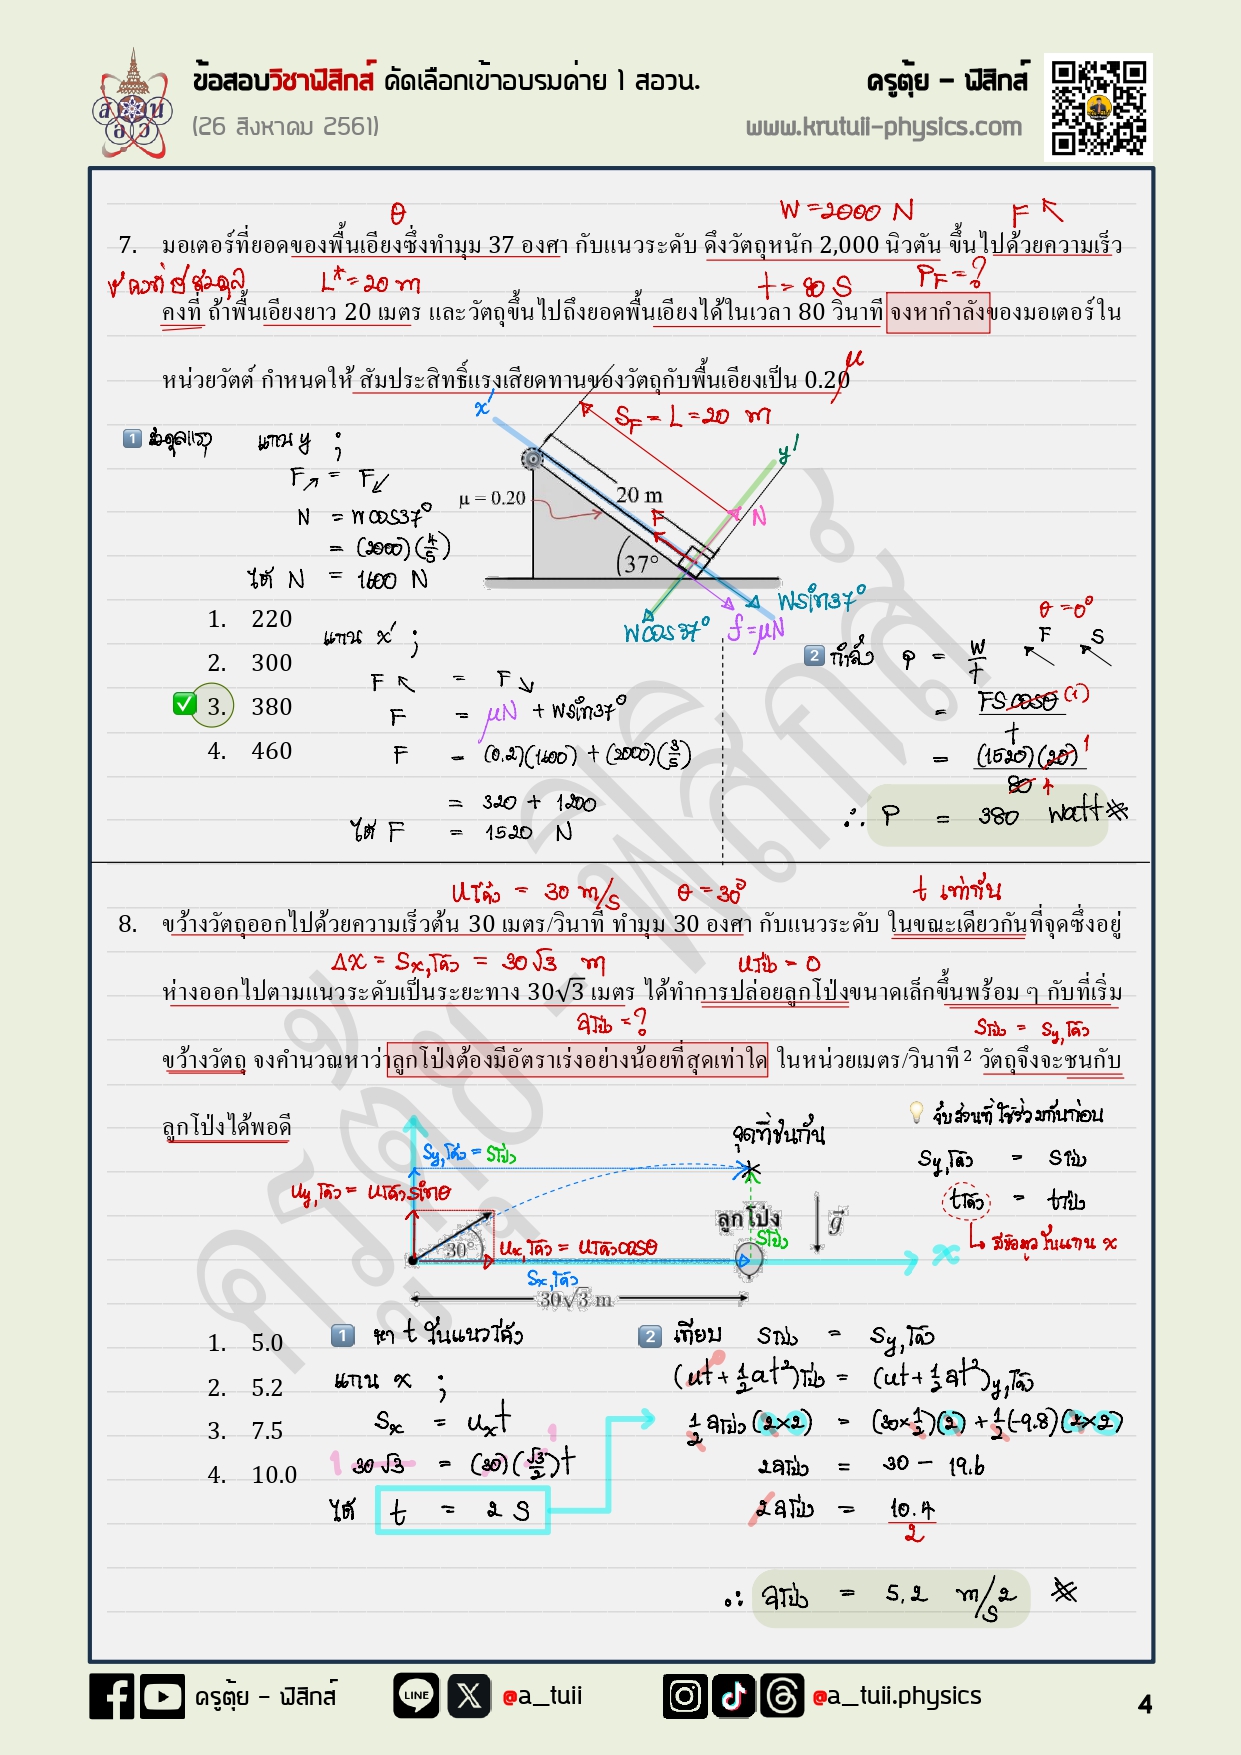 ข้อสอบวิชาฟิสิกส์ คัดเลือกเข้าอบรมค่าย 1 สอวน.
ครูตุ้ย - ฟิสิกส์
(26 สิงหาคม 2561)
www.krutuii-physics.com
θ
W = 2000 N
F ↖
7. มอเตอร์ที่ยอดของพื้นเอียงซึ่งทำมุม 37 องศา กับแนวระดับ ดึงวัตถุหนัก 2,000 นิวตัน ขึ้นไปด้วยความเร็ว
L = 20 m
t = 80 S
P_F = ?
คงที่ ถ้าพื้นเอียงยาว 20 เมตร และวัตถุขึ้นไปถึงยอดพื้นเอียงได้ในเวลา 80 วินาที จงหากำลังของมอเตอร์ใน
หน่วยวัตต์ กำหนดให้ สัมประสิทธิ์แรงเสียดทานของวัตถุกับพื้นเอียงเป็น 0.20
μ
x'
S_F = L = 20 m
1 สมดุลแรง แกน y ;
y'
F↗ = F↙
20 m
μ = 0.20
F
N
N = Wcos37°
= (2000)(4/5)
37°
ได้ N = 1600 N
Wsin37°
Wcos37° f = μN
1. 220
แกน x' ;
θ = 0°
F S
2 กำลัง P = W/t
2. 300
F↖ = F↘
3. 380
F = μN + Wsin37°
= FScosθ (1) / t
4. 460
F = (0.2)(1600) + (2000)(3/5)
= (1520)(20) 1 / 80 4
= 320 + 1200
∴ P = 380 Watt
ได้ F = 1520 N
uโค้ง = 30 m/s θ = 30° t เท่ากัน
8. ขว้างวัตถุออกไปด้วยความเร็วต้น 30 เมตร/วินาที ทำมุม 30 องศา กับแนวระดับ ในขณะเดียวกันที่จุดซึ่งอยู่
Δx = Sx,โค้ง = 30√3 m
uโป่ง = 0
ห่างออกไปตามแนวระดับเป็นระยะทาง 30√3 เมตร ได้ทำการปล่อยลูกโป่งขนาดเล็กขึ้นพร้อม ๆ กับที่เริ่ม
aโป่ง = ?
Sโป่ง = Sy,โค้ง
ขว้างวัตถุ จงคำนวณหาว่าลูกโป่งต้องมีอัตราเร่งอย่างน้อยที่สุดเท่าใด ในหน่วยเมตร/วินาที² วัตถุจึงจะชนกับ
ลูกโป่งได้พอดี
จับส่วนที่ใช้ร่วมกันก่อน
จุดที่ชนกัน
Sy,โค้ง = Sโป่ง
Sy,โค้ง = Sโป่ง
uy,โค้ง = uโค้งsinθ
tโค้ง = tโป่ง
ลูกโป่ง
g
Sโป่ง
30°
ux,โค้ง = uโค้งcosθ
มีข้อมูลในแกน x
x
Sx,โค้ง
30√3 m
1 หา t ในแนวโค้ง
2 เทียบ Sโป่ง = Sy,โค้ง
1. 5.0
แกน x ;
(ut + 1/2 at²)โป่ง = (ut + 1/2 at²)y,โค้ง
2. 5.2
Sx = uxt
1/2 aโป่ง (2×2) = (30×1/2)(2) + 1/2(-9.8)(2×2)
3. 7.5
1 30√3 = (30)(√3/2)t 1
2aโป่ง = 30 - 19.6
4. 10.0
ได้ t = 2 S
2aโป่ง = 10.4
2
∴ aโป่ง = 5.2 m/s2
ครูตุ้ย - ฟิสิกส์
LINE
@a_tuii
@a_tuii.physics
4
ครูตุ้ย - ฟิสิกส์